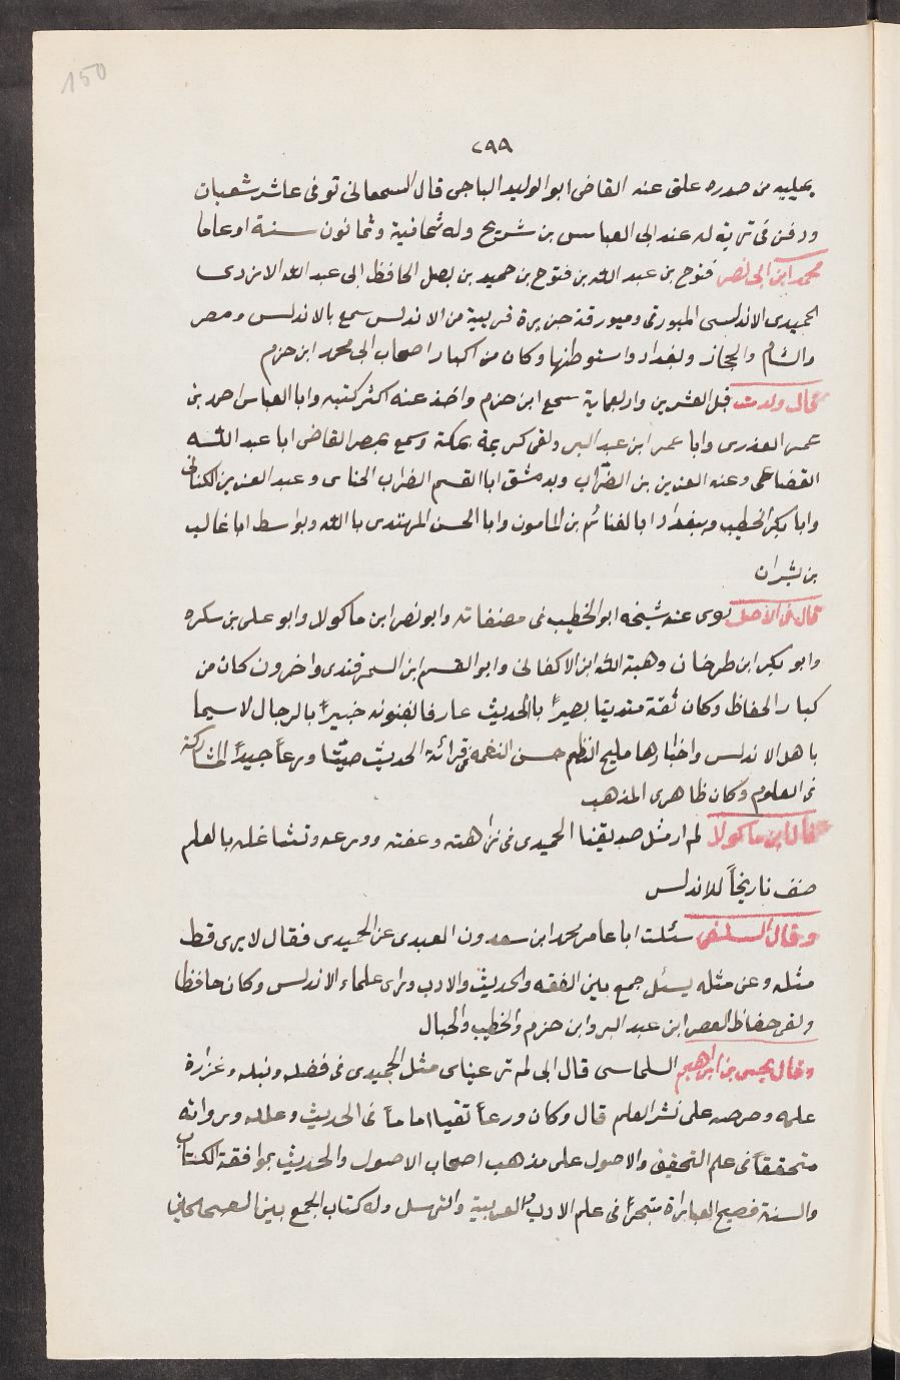 150
٢٩٩
يمليه من صدره علق عنه القاضى ابو الوليد الباجى قال السمعانى توفى عاشر شعبان
ودفن فى تربة له عند ابى العباس بن شريح وله ثمانية وثمانون سنة او عاما
محمد ابن ابى نصر فتوح بن عبد الله بن فتوح بن حميد بن يصل الحافظ ابى عبد الله الازدى
الحميدى الاندلسى الميورقى وميورقة جزيرة قريبة من الاندلس سمع بالاندلس ومصر
والشام والحجاز وبغداد واستوطنها وكان من اكبار اصحاب ابى محمد ابن حزم
قال ولدت قبل العشرين واربعماية سمع ابن حزم واخذ عنه اكثر كتبه وابا العباس احمد بن
عمر العذرى وابا عمر ابن عبد البر ولقى كريمة بمكة وسمع بمصر القاضى ابا عبد الله
القضاعى وعنه العزيز بن الضراب وبدمشق ابا القسم الضراب الحناى وعبد العزيز الكنانى
وابا بكر الخطيب وببغداد ابا الغنائم بن المامون وابا الحسن المهتدى باالله وبواسط ابا غالب
بن بشران
قال فى الأصل روى عنه شيخه ابو الخطيب فى مصنفاته وابو نصر ابن ماكولا وابو على بن سكره
وابو بكر ابن طرخان وهبة الله ابن الاكفانى وابو القسم ابن السمرقندى واخرون كان من
كبار الحفاظ وكان ثقة متدينا بصيرًا بالحديث عارفا بفنونه خبيرًا بالرجال لاسيما
باهل الاندلس واخبارها مليح النظم حسن النغمه فى قرائة الحديث صيتًا ورعاً جيدًا المشاركة
فى العلوم وكان ظاهرى المذهب
قال ابن ماكولا لم ار مثل صديقنا الحميدى فى نزاهته وعفته وورعه وتشاغله بالعلم
صنف تاريخاً للاندلس
وقال السلفى سئلت ابا عامر محمد ابن سعدون العبدى عن الحميدى فقال لا يرى قط
مثله وعن مثله يسئل جمع بين الفقه والحديث والادب وراى علماء الاندلس وكان حافظا
ولقى حفاظ العصر ابن عبد البر وابن حزم والخطيب والحبال
وقال يحيى بن ابراهيم السلماسى قال ابى لم تر عيناى مثل الحميدى فى فضله ونبله وغزارة
علمه وحرصه على نشر العلم قال وكان ورعاً تقيا اماماً فى الحديث وعلله ورواته
متحققاً فى علم التحقيق والاصول على مذهب اصحاب الاصول والحديث بموافقة الكتاب
والسنة فصيح العبارة متبحرًا فى علم الادب والعربية والترسل وله كتاب الجمع بين الصحيحين